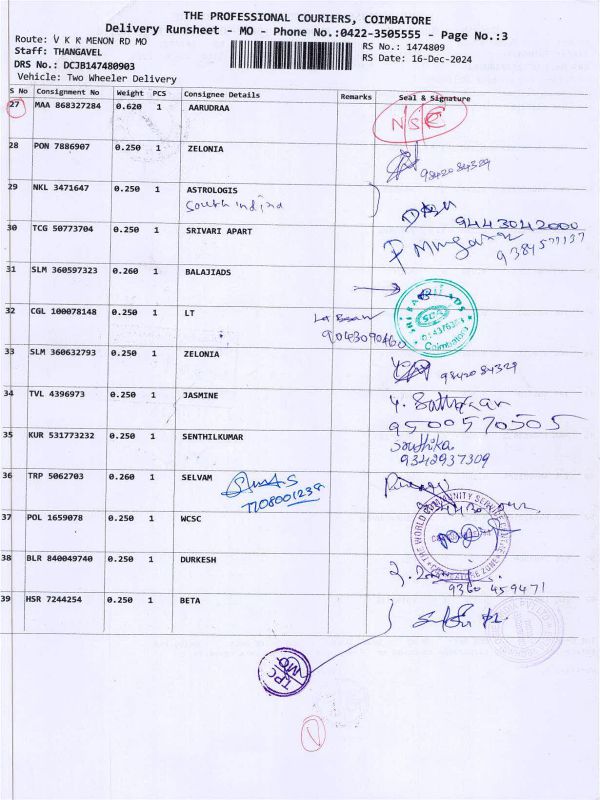 THE PROFESSIONAL COURIERS, COIMBATORE
Delivery Runsheet - MO - Phone No.:0422-3505555 - Page No.:3
Route: V K K MENON RD MO
RS No.: 1474809
Staff: THANGAVEL
RS Date: 16-Dec-2024
DRS No.: DCJB147480903
Vehicle: Two Wheeler Delivery
S No Consignment No Weight PCS Consignee Details Remarks Seal & Signature
27 MAA 868327284 0.620 1 AARUDRAA
NSC
28 PON 7886907 0.250 1 ZELONIA
9842084329
29 NKL 3471647 0.250 1 ASTROLOGIS
South India
9443042000
30 TCG 50773704 0.250 1 SRIVARI APART
P Murugasan
31 SLM 360597323 0.260 1 BALAJIADS
SRI BALAJI ADS
Coimbatore
32 CGL 100078148 0.250 1 LT
9043090460
33 SLM 360632793 0.250 1 ZELONIA
9842084329
34 TVL 4396973 0.250 1 JASMINE
9500570505
35 KUR 531773232 0.250 1 SENTHILKUMAR
Southika
9342937309
36 TRP 5062703 0.260 1 SELVAM
37 POL 1659078 0.250 1 WCSC
THE WORLD COMMUNITY SERVICE CENTRE
COIMBATORE ZONE
38 BLR 840049740 0.250 1 DURKESH
9360459471
39 HSR 7244254 0.250 1 BETA
TPC
MO